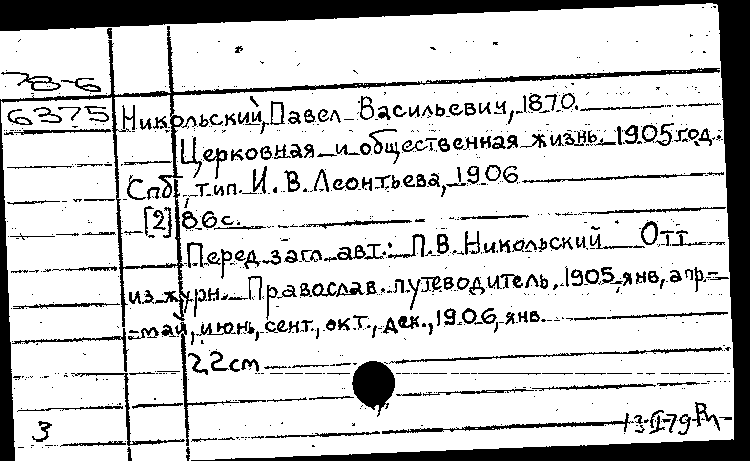 78-6
6375 Никольский, Павел Васильевич, 1870.
Церковная и общественная жизнь. 1905 год.
Спб, тип. И. В. Леонтьева, 1906
[2] 86 с.
Перед загл. авт.: П.В. Никольский Отт
из журн. Православ. путеводитель, 1905, янв, апр-
-май, июнь, сент., окт., дек., 1906, янв.
22 см
3 13 II 79